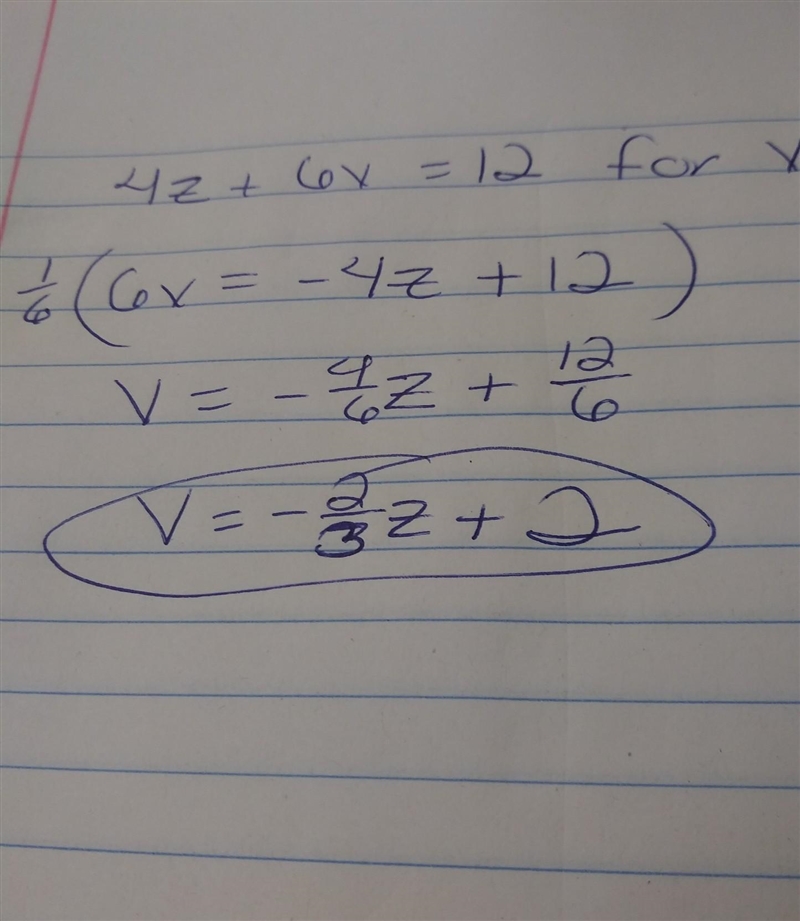 4z + 6v = 12 for v
1/6 (6v = -4z + 12)
v = -4/6 z + 12/6
v = -2/3 z + 2